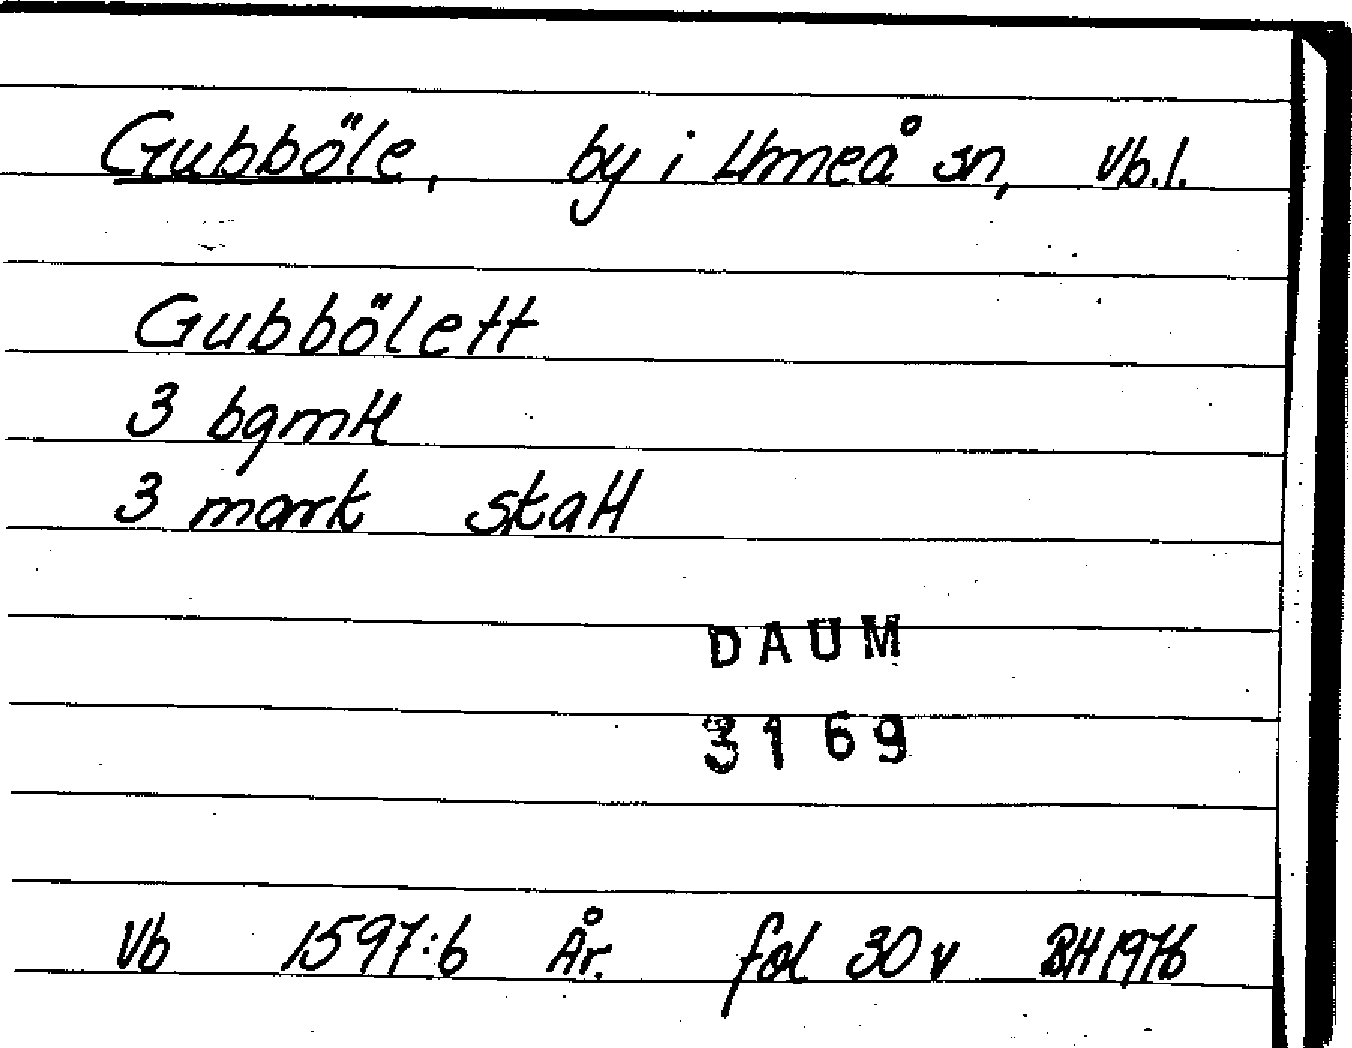 Gubböle, by i Umeå sn, Vb.l.
Gubbölett
3 bgmH
3 mark staH
DAUM
3169
Vb 1597:6 År. fol 30 v BH 1976